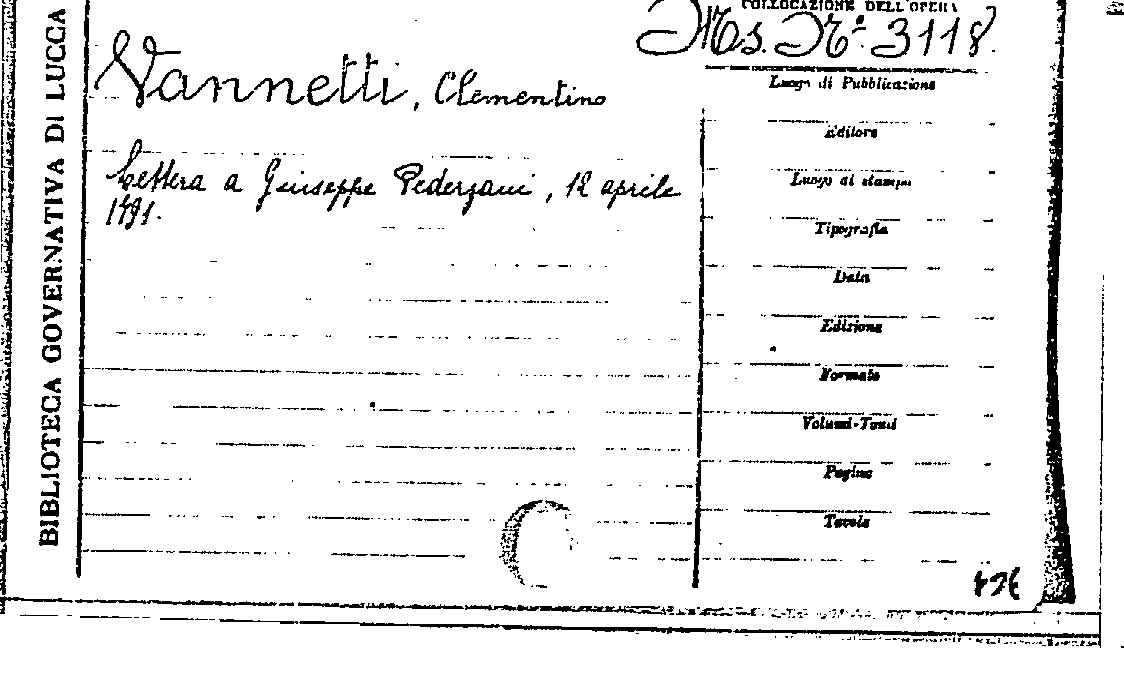 BIBLIOTECA GOVERNATIVA DI LUCCA
COLLOCAZIONE DELL'OPERA
Ms. N.º 3118.
Vannetti, Clementino
Lettera a Giuseppe Pederzani, 12 aprile
1791.
Luogo di Pubblicazione
Editore
Luogo di stampa
Tipografia
Data
Edizione
Formato
Volumi-Tomi
Pagine
Tavole